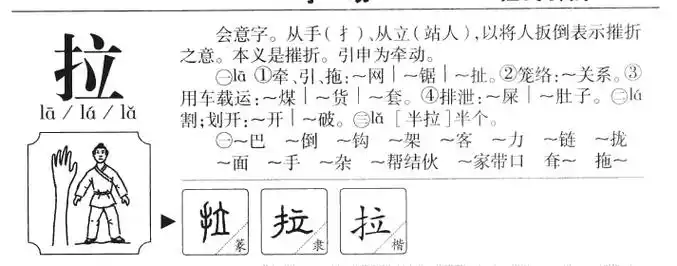 拉
lā / lá / lǎ
会意字。从手(扌)、从立(站人),以将人扳倒表示摧折
之意。本义是摧折。引申为牵动。
㊀lā ①牵、引、拖:~网|~锯|~扯。②笼络:~关系。③
用车载运:~煤|~货|~套。④排泄:~屎|~肚子。㊁lá
割;划开:~开|~破。㊂lǎ [半拉]半个。
㊀~巴 ~倒 ~钩 ~架 ~客 ~力 ~链 ~拢
~面 ~手 ~杂 ~帮结伙 ~家带口 耷~ 拖~
拉 篆 拉 隶 拉 楷